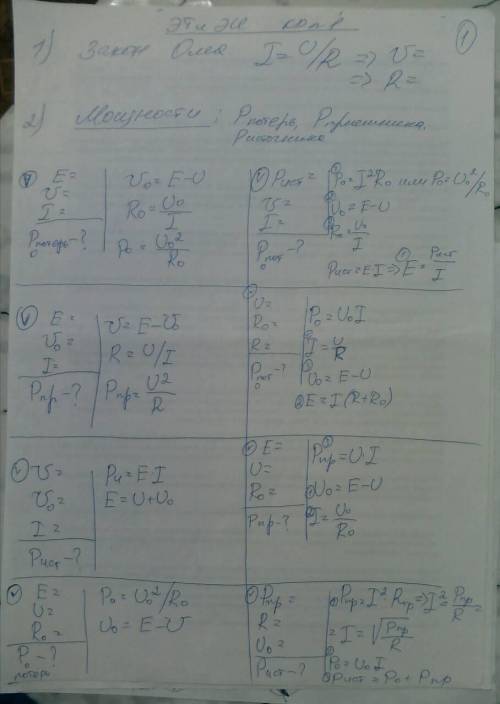 1
1) Закон Ома I = U/R => U =
=> R =
2) Мощности: Pпотерь, Pприемника,
Pисточника
E =
U =
I =
P₀потерь - ?
U₀ = E - U
R₀ = U₀/I
P₀ = U₀²/R₀
Pист =
U =
I =
P₀пот - ?
P₀ = I²R₀ или P₀ = U₀²/R₀
U₀ = E - U
R₀ = U₀/I
Pист = EI => E = Pист/I
E =
U₀ =
I =
Pпр - ?
U = E - U₀
R = U/I
Pпр = U²/R
U =
R₀ =
R =
P₀пот - ?
P₀ = U₀I
I = U/R
U₀ = E - U
E = I(R+R₀)
U =
U₀ =
I =
Pист - ?
Pи = E·I
E = U + U₀
E =
U =
R₀ =
Pпр - ?
Pпр = U·I
U₀ = E - U
I = U₀/R₀
E =
U =
R₀ =
P₀ - ?
потерь
P₀ = U₀²/R₀
U₀ = E - U
Pпр =
R =
U₀ =
Pист - ?
Pпр = I²·Rпр => I² = Pпр/R =
= I = √Pпр/R
P₀ = U₀I
Pист = P₀ + Pпр